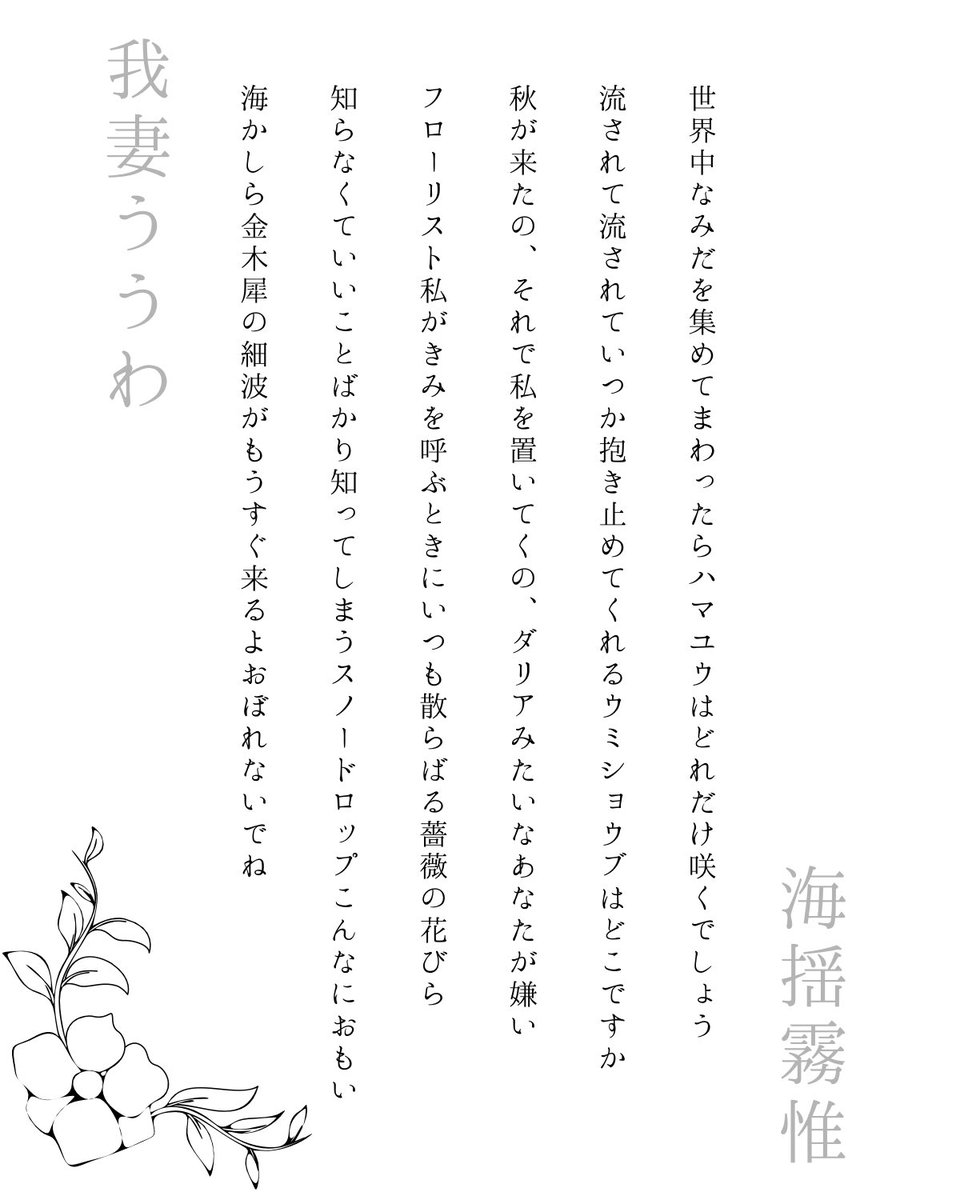 海揺霧惟
世界中なみだを集めてまわったらハマユウはどれだけ咲くでしょう
流されて流されていつか抱き止めてくれるウミショウブはどこですか
秋が来たの、それで私を置いてくの、ダリアみたいなあなたが嫌い
フローリスト私がきみを呼ぶときにいつも散らばる薔薇の花びら
知らなくていいことばかり知ってしまうスノードロップこんなにおもい
海かしら金木犀の細波がもうすぐ来るよおぼれないでね
我妻ううわ